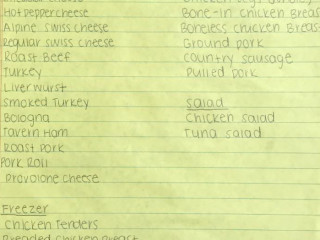 Hot pepper cheese
Alpine swiss cheese
Regular swiss cheese
Roast Beef
Turkey
Liverwurst
Smoked Turkey
Bologna
Tavern Ham
Roast Pork
Pork Roll
Provolone cheese
Freezer
Chicken Tenders
Breaded chicken Breast
Bone-in chicken Breas
Boneless chicken Breas
Ground pork
Country sausage
Pulled pork
Salad
Chicken salad
Tuna salad